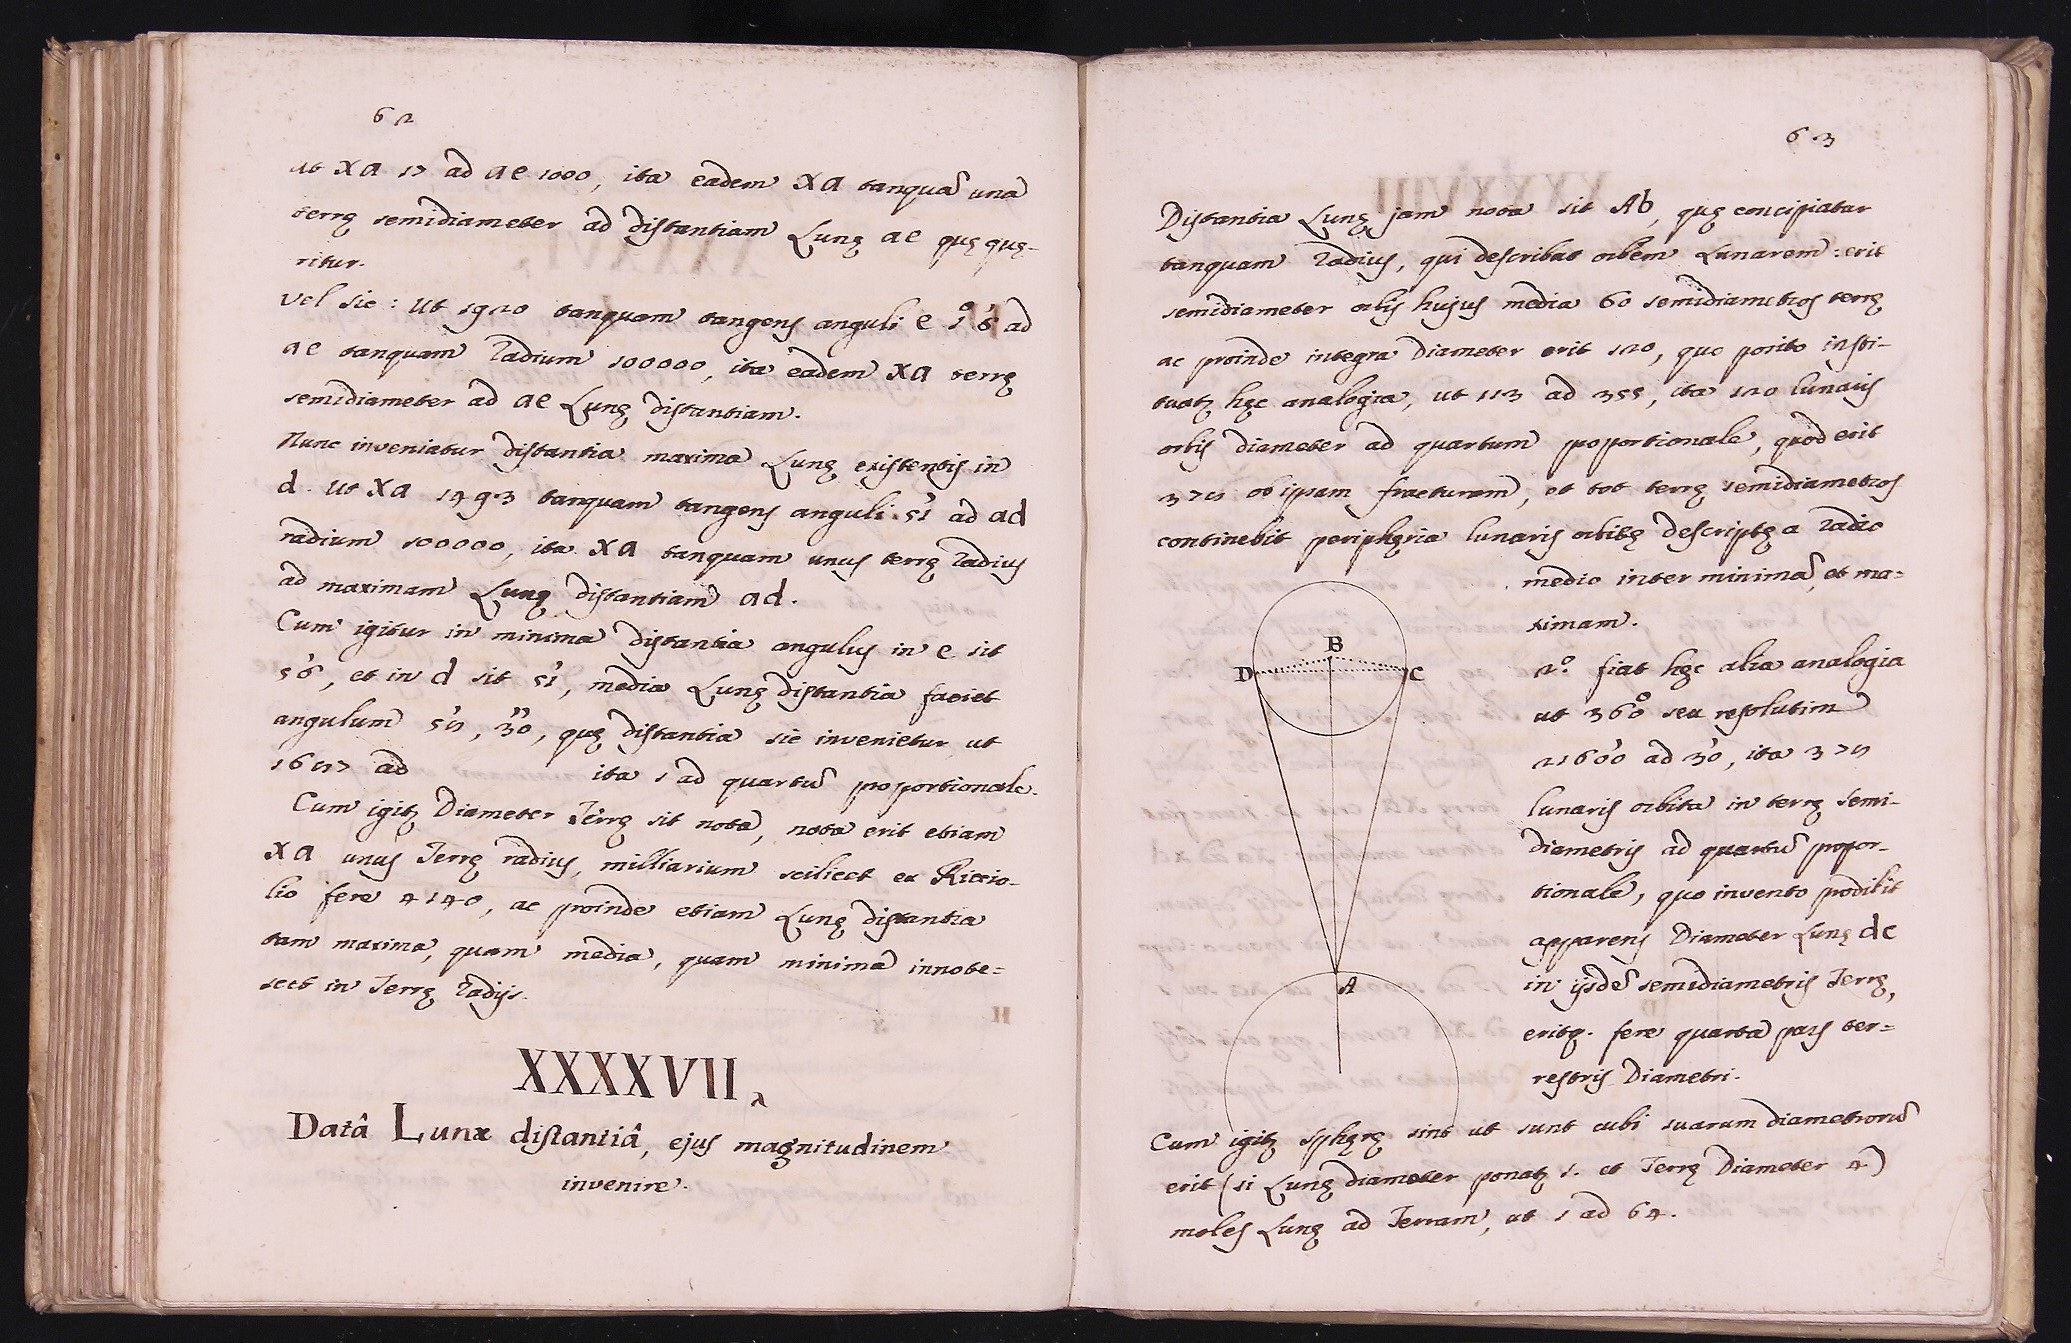 62
ut xa 17 ad ae 1000, ita eadem xa tanquã una
terrę semidiameter ad distantiam Lunę ae quę quę-
ritur.
Vel sic: Ut 1920 tanquam tangens anguli e 1° 6' ad
ae tanquam Radium 100000, ita eadem xa terrę
semidiameter ad ae Lunę distantiam.
Nunc inveniatur distantia maxima Lunę existentis in
d. Ut xa 1493 tanquam tangens anguli 51' ad ad
radium 100000, ita xa tanquam unus terrę Radius
ad maximam Lunę distantiam ad.
Cum igitur in minima distantia angulus in e sit
56', et in d sit 51', media Lunę distantia faciet
angulum 57', 30'', quę distantia sic invenietur, ut
1657 ad ita 1 ad quartũ proportionale.
Cum igitꝫ Diameter Terrę sit nota, nota erit etiam
xa unus Terrę radius, milliarium scilicet ex Riccio-
lio fere 4140, ac proinde etiam Lunę distantia
tam maxima, quam media, quam minima innote=
scet in Terrę Radijs.
XXXXVII.
Datâ Lunæ distantiâ, ejus magnitudinem
invenire.
63
Distantia Lunę jam nota sit Ab, quę concipiatur
tanquam Radius, qui describat orbem Lunarem: erit
semidiameter orbis hujus media 60 semidiametros terrę
ac proinde integra Diameter erit 120, quo posito insti-
tuatꝫ hęc analogia, ut 113 ad 355, ita 120 lunaris
orbis diameter ad quartum proportionale, quod erit
375 ob ipsam fracturam, et tot terrę semidiametros
continebit periphęria lunaris orbitę descriptę a Radio
medio inter minimã, et ma=
ximam.
2° fiat hęc alia analogia
ut 360° seu resolutim
21600' ad 30', ita 375
lunaris orbita in terrę semi-
diametris ad quartũ propor-
tionale, quo invento prodibit
apparens Diameter Lunę dc
in ijsdẽ semidiametris Terrę,
eritq. fere quarta pars ter=
restris Diametri.
B
D
C
A
Cum igitꝫ sphęrę sint ut sunt cubi suarum diametrorũ
erit (si Lunę diameter ponatꝫ 1. et Terrę Diameter 4)
moles Lunę ad Terram, ut 1 ad 64.